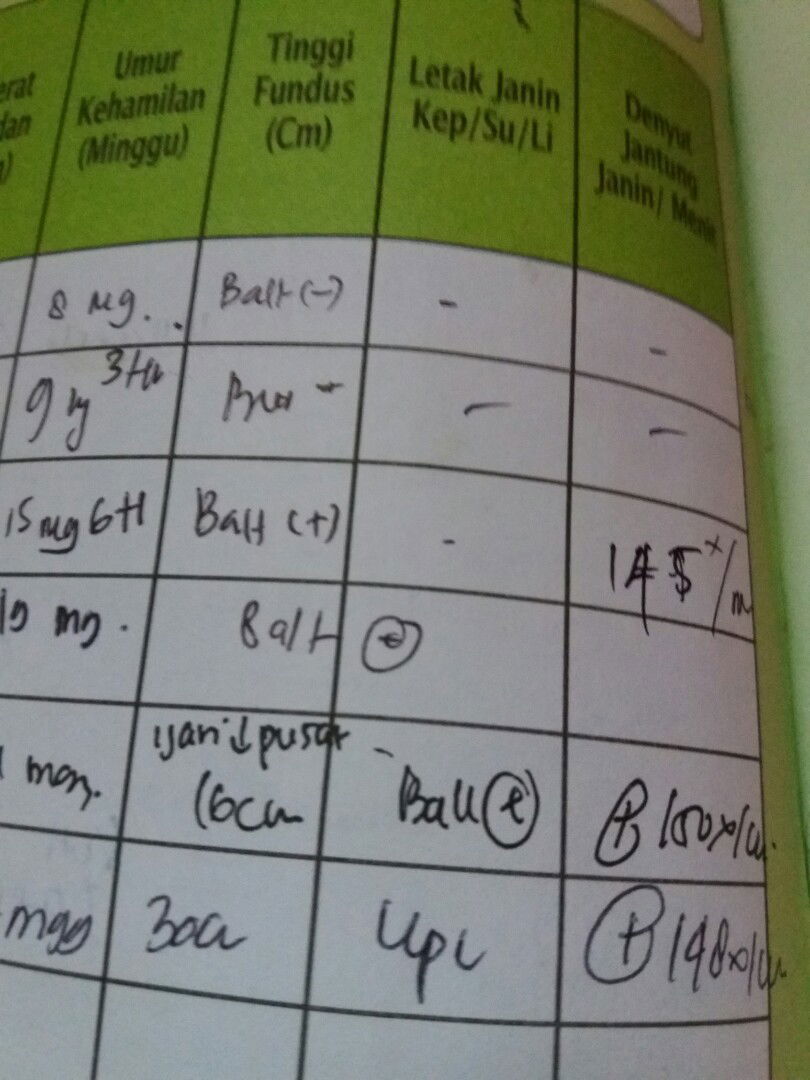 erat
dan
)
Umur
Kehamilan
(Minggu)
Tinggi
Fundus
(Cm)
Letak Janin
Kep/Su/Li
Denyut
Jantung
Janin/ Menit
8 mg. Ball (-) - -
9 3Hr - -
15 mg 6H Ball (+) - 145 x/m
19 mg. Ball (+)
1 jari ↓ pusat -
Ball (+) (+) 150x/m
mgg (+) 148x/m